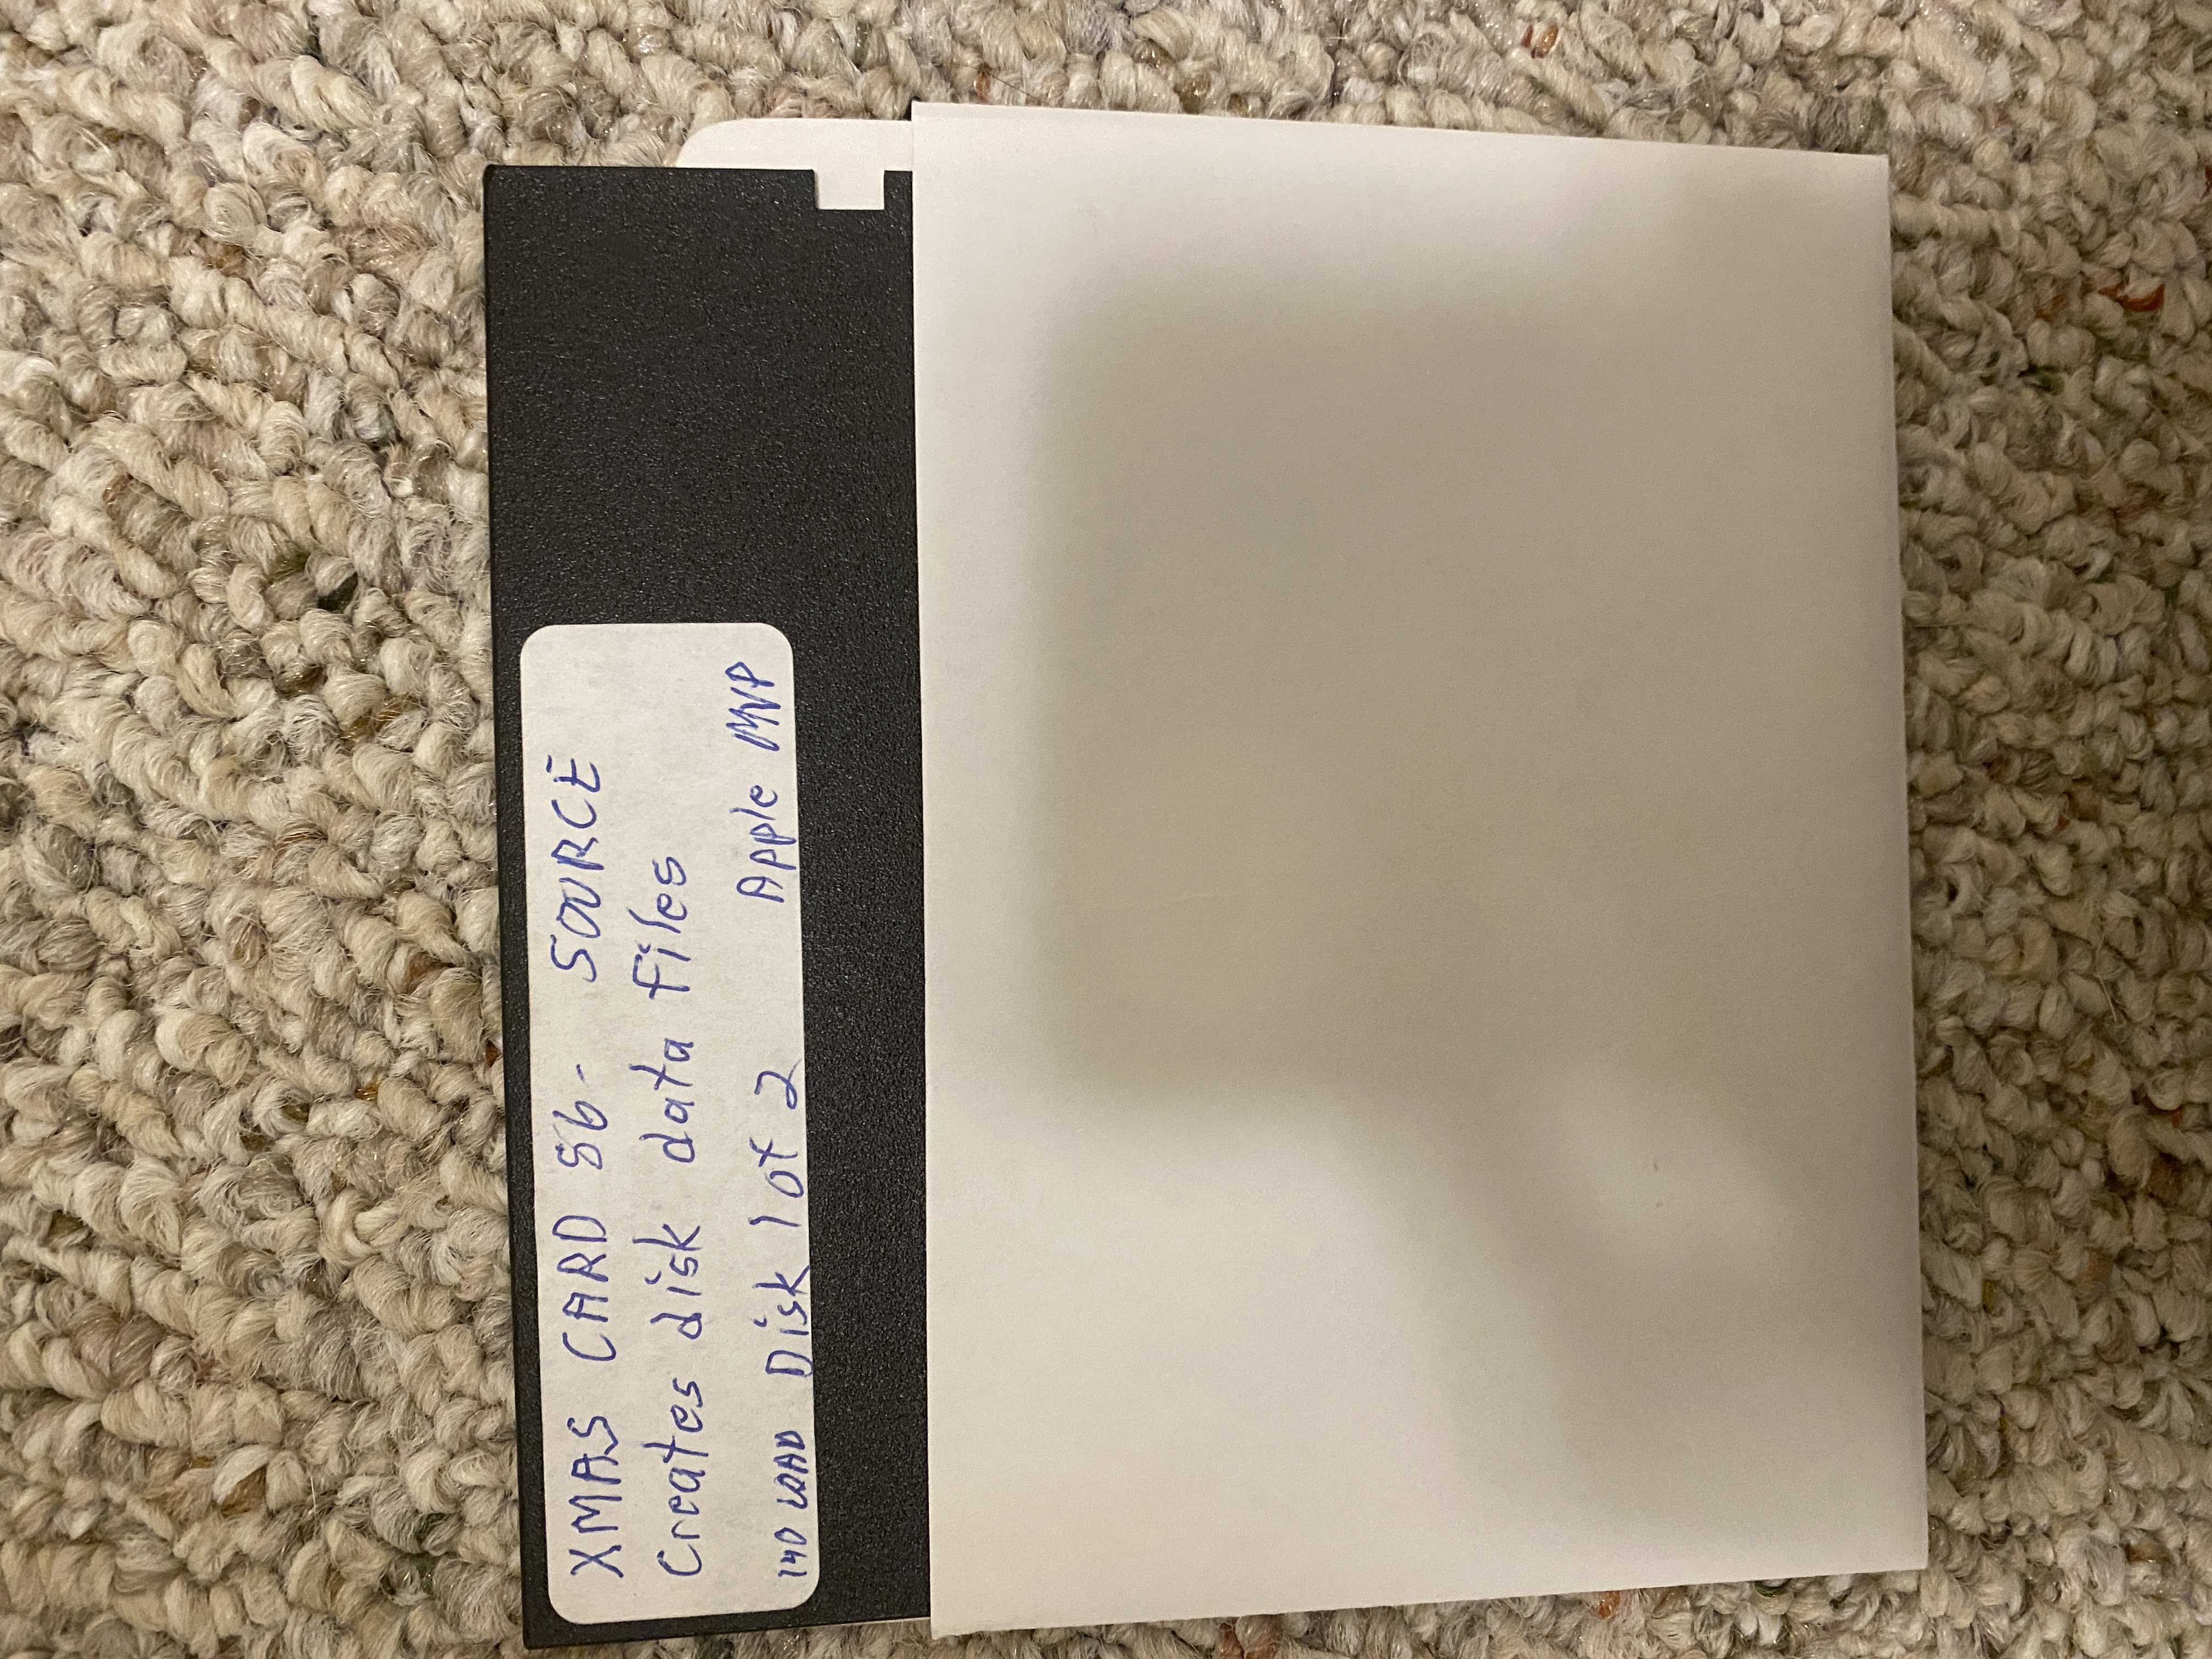 XMAS CARD 86- SOURCE
Creates disk data files
140 LOAD Disk 1 of 2 Apple MVP